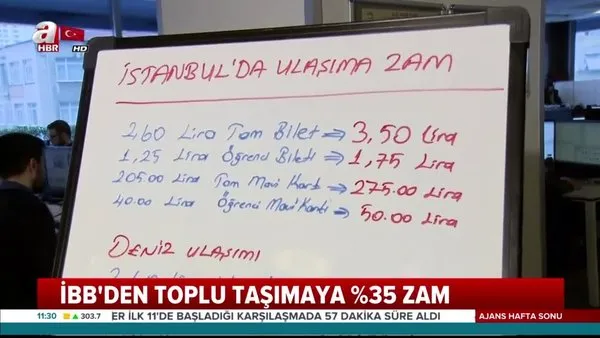 a
HBR
HD
İSTANBUL'DA ULAŞIMA ZAM
2,60 Lira Tam Bilet ⇒ 3,50 Lira
1,25 Lira Öğrenci Bileti ⇒ 1,75 Lira
205.00 Lira Tam Mavi Kart ⇒ 275.00 Lira
40.00 Lira Öğrenci Mavi Kartı ⇒ 50.00 Lira
DENİZ ULAŞIMI
İBB'DEN TOPLU TAŞIMAYA %35 ZAM
11:30 ▲ 303.7 ER İLK 11'DE BAŞLADIĞI KARŞILAŞMADA 57 DAKİKA SÜRE ALDI AJANS HAFTA SONU